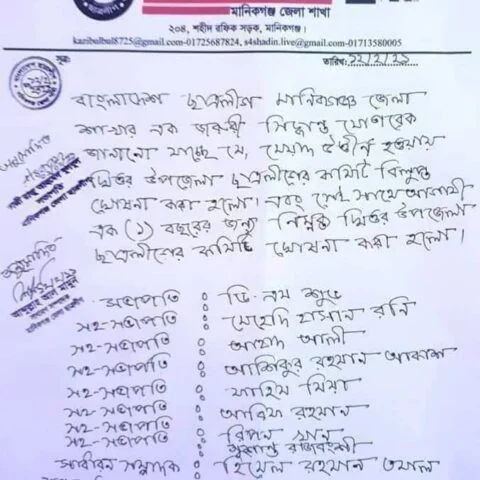 মানিকগঞ্জ জেলা শাখা
২০৪, শহীদ রফিক সড়ক, মানিকগঞ্জ।
karibulbul8725@gmail.com-01725687824, s4shadin.live@gmail.com-01713580005
সূত্রঃ তারিখঃ ১২/২/২১
বাংলাদেশ ছাত্রলীগ মানিকগঞ্জ জেলা
শাখার এক জরুরী সিদ্ধান্ত মোতাবেক
জানানো যাচ্ছে যে, মেয়াদ উত্তীর্ন হওয়ায়
ঘিওর উপজেলা ছাত্রলীগের কমিটি বিলুপ্ত
ঘোষনা করা হলো। এবং সেই সাথে আগামী
এক (১) বছরের জন্য নিম্নক্ত ঘিওর উপজেলা
ছাত্রলীগের কমিটি ঘোষনা করা হলো।
অনুমোদিত
অনুমোদিত
সভাপতি : ভি. এম শুভ
সহ-সভাপতি : মেহেদি হাসান রনি
সহ-সভাপতি : আহাদ আলী
সহ-সভাপতি : আশিকুর রহমান আকাশ
সহ-সভাপতি : ফাহিম মিয়া
সহ-সভাপতি : আরিফ রহমান
সহ-সভাপতি : রিপন খান
সহ-সভাপতি : সুশান্ত রাজবংশী
সাধারন সম্পাদক : হিমেল রহমান তমাল